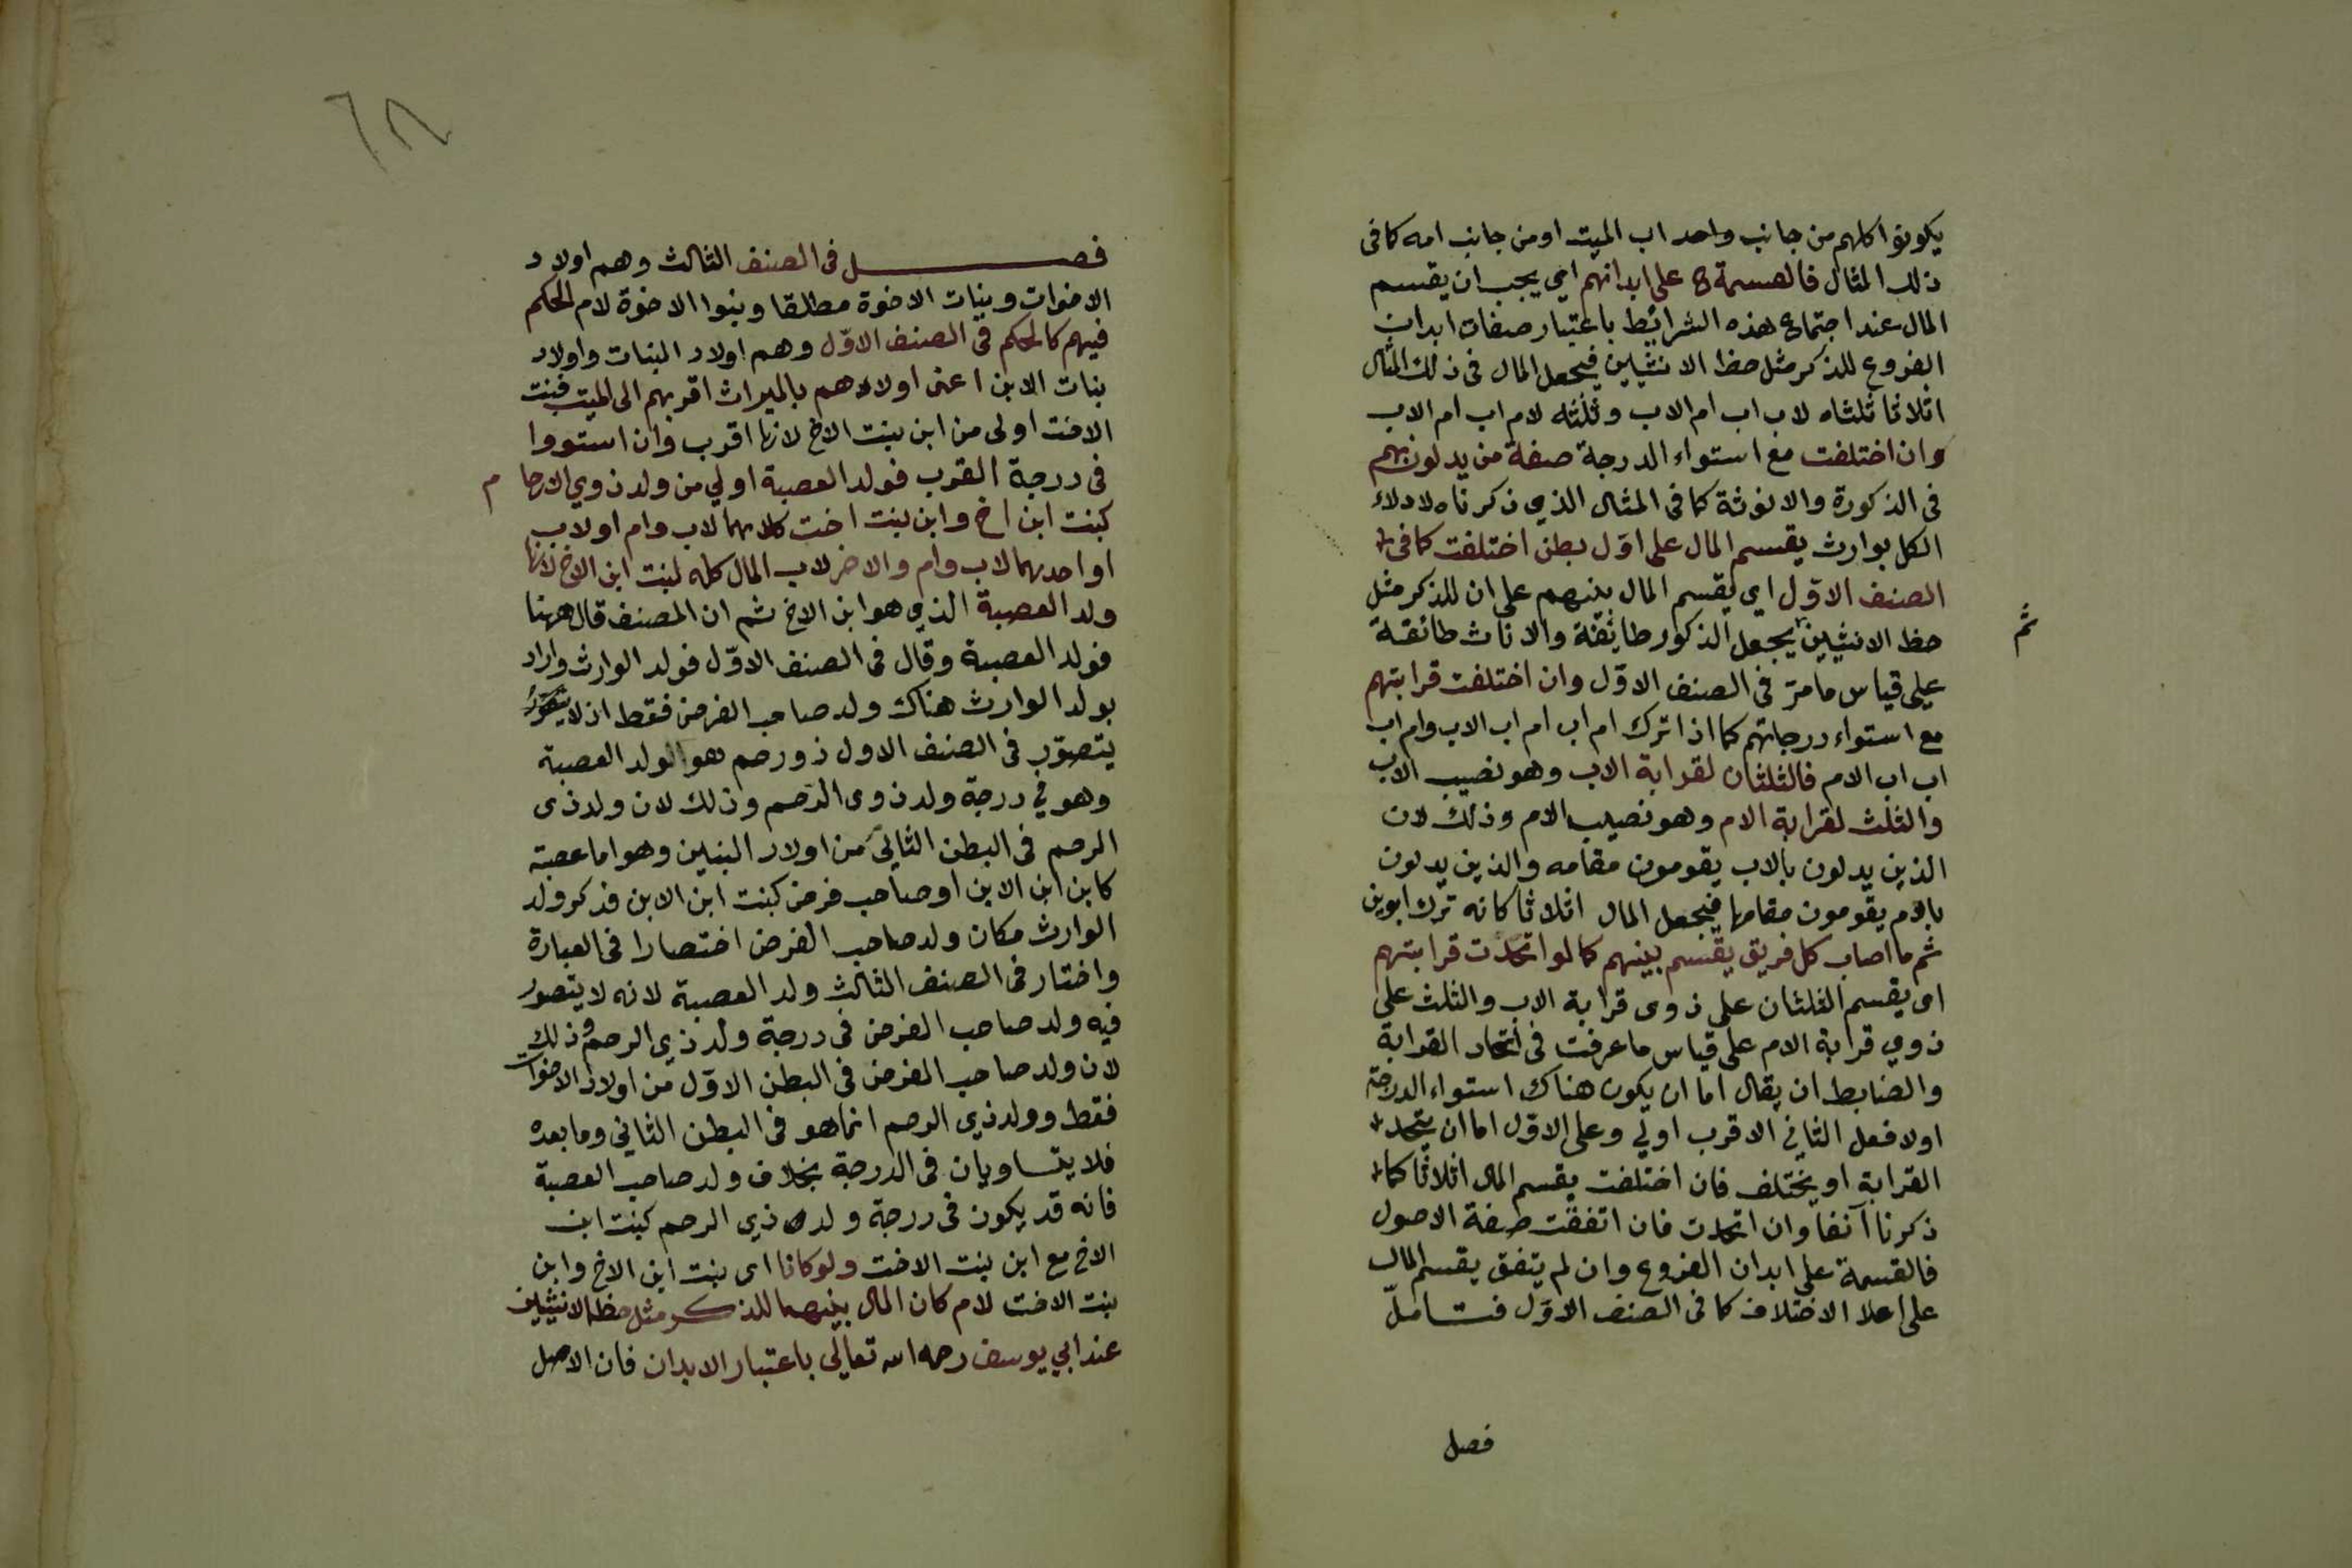 يكونوا كلهم من جانب واحد اب الميت او من جانب امه كما فى
ذلك المثال فالقسمة ح على ابدانهم اي يجب ان يقسم
المال عند اجتماع هذه الشرائط باعتبار صفات ابدان
الفروع للذكر مثل حظ الانثيين فيجعل المال فى ذلك المثال
اثلاثا ثلثاه لاب اب ام الاب وثلثه لام اب ام الاب
وان اختلفت مع استواء الدرجة صفة من يدلون بهم
فى الذكورة والانوثة كما فى المثال الذي ذكرناه لادلاء
الكل بوارث يقسم المال على اوّل بطن اختلفت كما فى
الصنف الاوّل اي يقسم المال بينهم على ان للذكر مثل
حظ الانثيين يجعل الذكور طائفة والاناث طائفة
ثم
على قياس ما مرّ فى الصنف الاوّل وان اختلفت قرابتهم
مع استواء درجاتهم كما اذا ترك ام اب ام اب الاب وام اب
اب اب الام فالثلثان لقرابة الاب وهو نصيب الاب
والثلث لقرابة الام وهو نصيب الام وذلك لان
الذين يدلون بالاب يقومون مقامه والذين يدلون
بالام يقومون مقامها فيجعل المال اثلاثا كانه ترك ابوين
ثم ما اصاب كل فريق يقسم بينهم كما لو اتحدت قرابتهم
اى يقسم الثلثان على ذوى قرابة الاب والثلث على
ذوي قرابة الام على قياس ما عرفت فى اتحاد القرابة
والضابط ان يقال اما ان يكون هناك استواء الدرجة
اولا فعل الثاني الاقرب اولي وعلى الاوّل اما ان يتحد
القرابة او يختلف فان اختلفت يقسم المال اثلاثا كما
ذكرنا آنفا وان اتحدت فان اتفقت صفة الاصول
فالقسمة على ابدان الفروع وان لم يتفق يقسم المال
على اعلا الاختلاف كما فى الصنف الاوّل فتامل
فصل
٦٨
فصل فى الصنف الثالث وهم اولاد
الاخوات وبنات الاخوة مطلقا وبنوا الاخوة لام الحكم
فيهم كالحكم فى الصنف الاوّل وهم اولاد البنات واولاد
بنات الابن اعنى اولاهم بالميراث اقربهم الى الميت فبنت
الاخت اولى من ابن بنت الاخ لانها اقرب وان استووا
فى درجة القرب فولد العصبة اولي من ولد ذوي الارحا م
كبنت ابن اخ وابن بنت اخت كلاهما لاب وام او لاب
او احدهما لاب وام والاخر لاب المال كله لبنت ابن الاخ لانها
ولد العصبة الذي هو ابن الاخ ثم ان المصنف قال ههنا
فولد العصبة وقال فى الصنف الاوّل فولد الوارث واراد
بولد الوارث هناك ولد صاحب الفرض فقط اذ لا
يتصوّر فى الصنف الاول ذو رحم هو الولد العصبة
وهو في درجة ولد ذوى الرّحم وذلك لان ولد ذى
الرحم فى البطن الثاني من اولاد البنين وهو اما عصبة
كابن ابن الابن او صاحب فرض كبنت ابن الابن فذكر ولد
الوارث مكان ولد صاحب الفرض اختصارا فى العبارة
واختار فى الصنف الثالث ولد العصبة لانه لا يتصور
فيه ولد صاحب الفرض فى درجة ولد ذي الرحم وذلك
لان ولد صاحب الفرض فى البطن الاوّل من اولاد الاخوات
فقط وولد ذي الرحم انما هو فى البطن الثاني وما بعده
فلا يتساويان فى الدرجة بخلاف ولد صاحب العصبة
فانه قد يكون فى درجة ولد ذي الرحم كبنت ابن
الاخ مع ابن بنت الاخت ولو كانا اى بنت ابن الاخ وابن
بنت الاخت لام كان المال بينهما للذكر مثل حظ الانثيين
عند ابي يوسف رحمه الله تعالى باعتبار الابدان فان الاصل